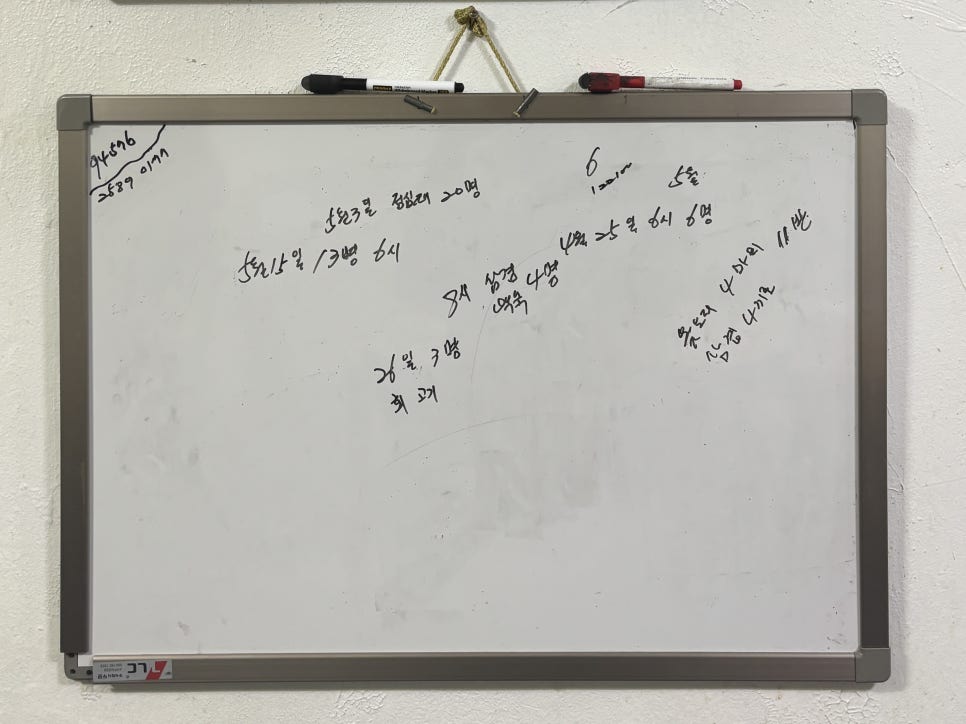 94576
2589 0177
6
5월
5월3일 점심때 20명
4월 25일 6시 6명
5월15일 13명 6시
8시 삼겹 4명
백숙
26일 3명
회 고기
옻오리 4마리 11반
삼겹 4키로